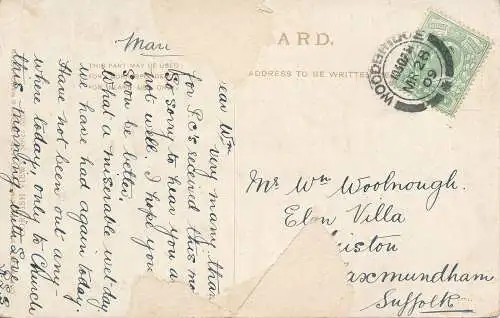 Mar
ARD.
THIS PART MAY BE USED
ADDRESS TO BE WRITTEN
WOODBRIDGE
MR 28
09
ear Wm
very many than
for P.C's received this mo
So sorry to hear you a
not well. I hope you
soon be better.
What a miserable wet day
we have had again today.
Have not been out any-
where today, only to Church
this morning. With Love
Mr Wm Woolnough.
Elm Villa
iston
axmundham
Suffolk